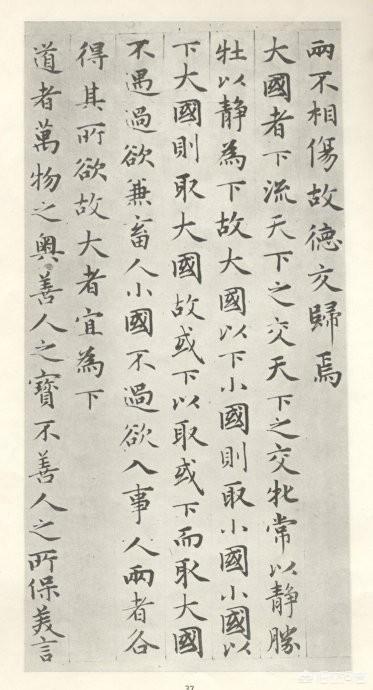 兩不相傷故德交歸焉
大國者下流天下之交天下之交牝常以静勝
牡以静為下故大國以下小國則取小國小國以
下大國則取大國故或下以取或下而取大國
不遇過欲兼畜人小國不過欲入事人兩者各
得其所欲故大者宜為下
道者萬物之奥善人之寶不善人之所保美言
37